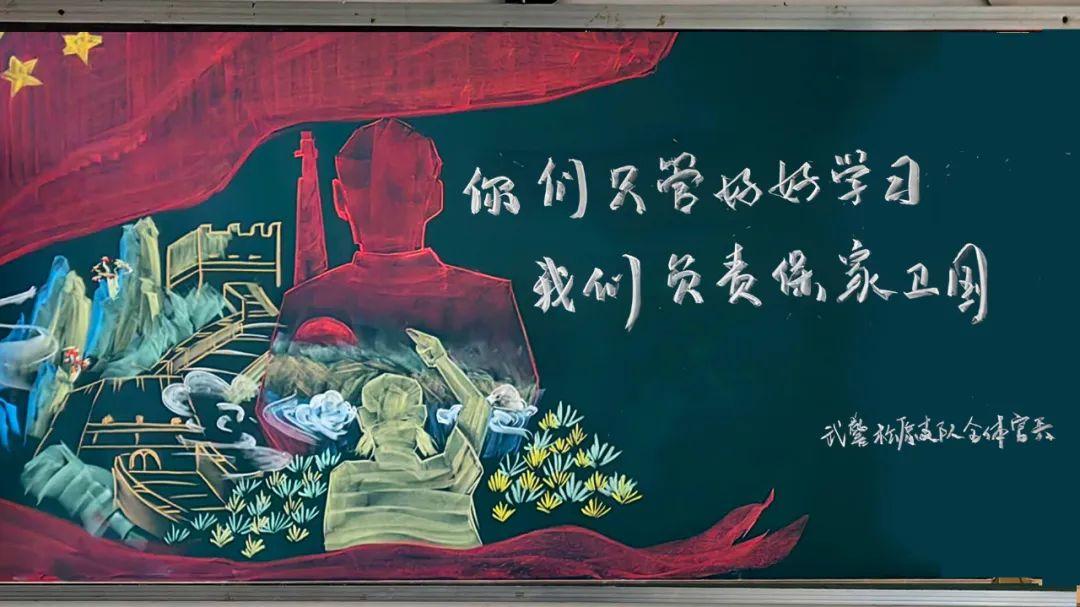 你们只管好好学习
我们负责保家卫国
武警松原支队全体官兵